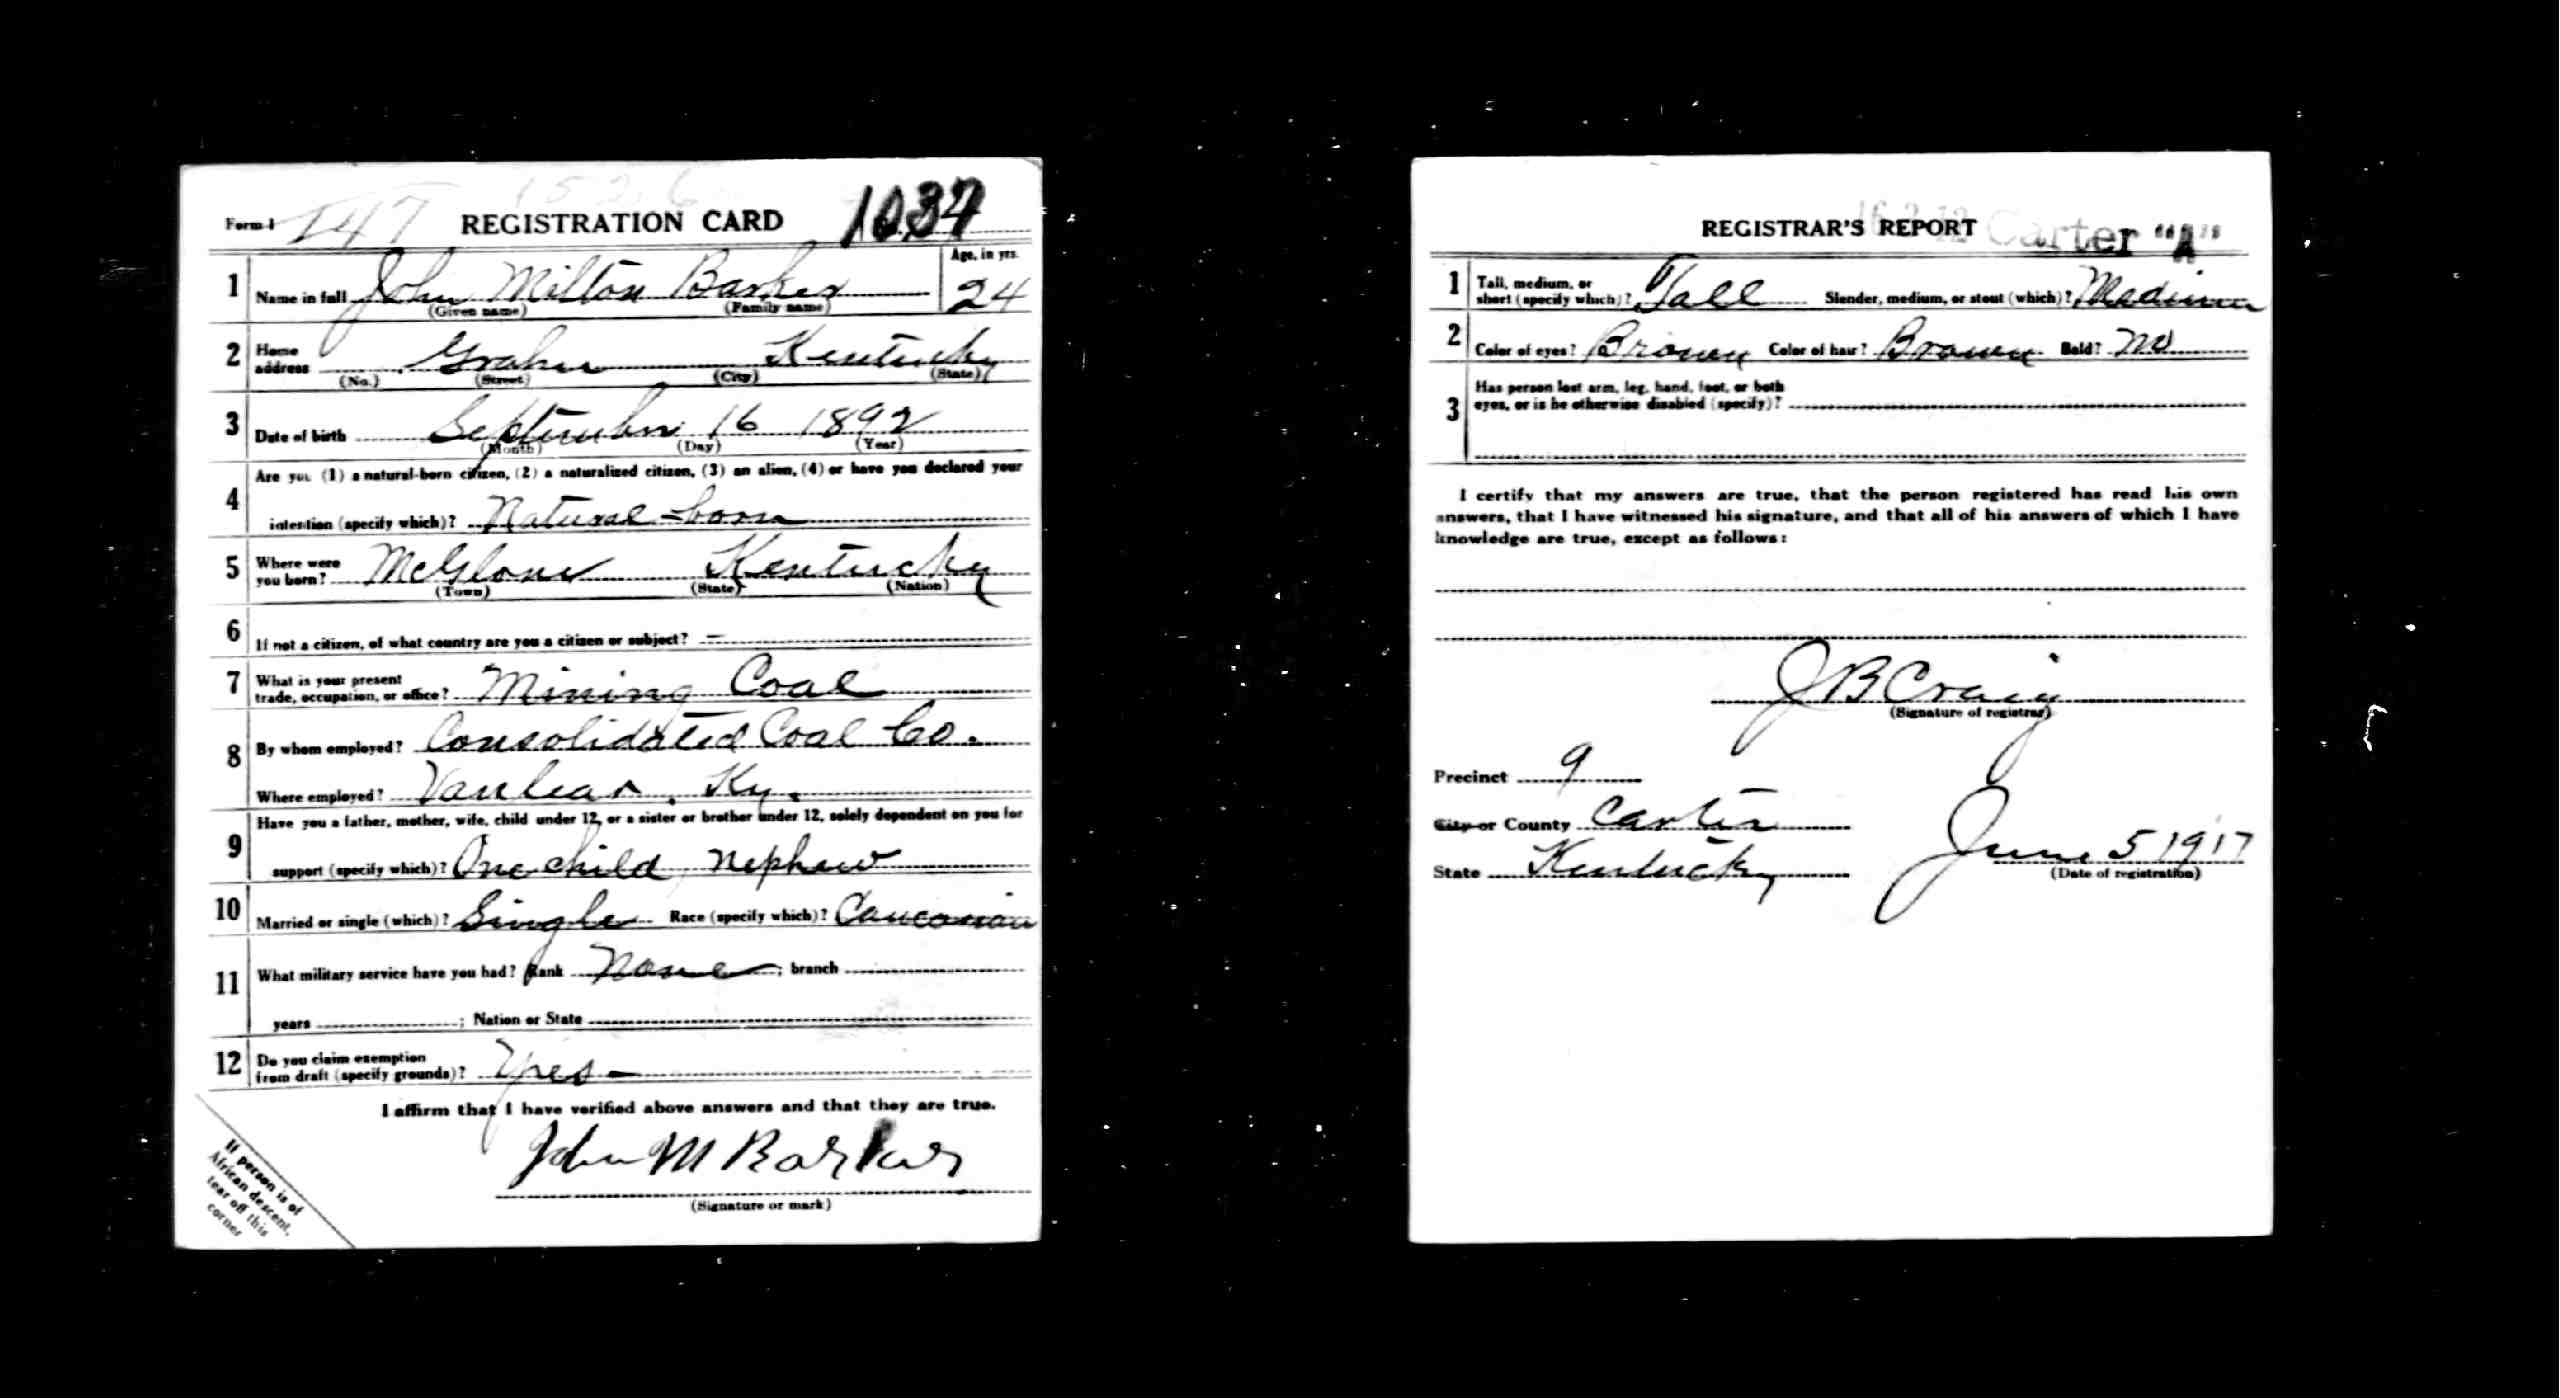 Form 1 147 REGISTRATION CARD
1 Name in full John Milton Barker Age, in yrs. 24
(Given name) (Family name)
2 Home address Grahn Kentucky
(No.) (Street) (City) (State)
3 Date of birth September 16 1892
(Month) (Day) (Year)
4 Are you (1) a natural-born citizen, (2) a naturalized citizen, (3) an alien, (4) or have you declared your
intention (specify which)? Natural-born
5 Where were you born? McGlone Kentucky
(Town) (State) (Nation)
6 If not a citizen, of what country are you a citizen or subject? —
7 What is your present trade, occupation, or office? Mining Coal
8 By whom employed? Consolidated Coal Co.
Where employed? Vanlear, Ky.
9 Have you a father, mother, wife, child under 12, or a sister or brother under 12, solely dependent on you for
support (specify which)? One child, nephew
10 Married or single (which)? Single Race (specify which)? Caucasian
11 What military service have you had? Rank None ; branch
years ; Nation or State
12 Do you claim exemption from draft (specify grounds)? Yes —
I affirm that I have verified above answers and that they are true.
John M Barker
(Signature or mark)
If person is of
African descent,
tear off this
corner
REGISTRAR'S REPORT Carter "A"
1 Tall, medium, or short (specify which)? Tall Slender, medium, or stout (which)? Medium
2 Color of eyes? Brown Color of hair? Brown Bald? No
3 Has person lost arm, leg, hand, foot, or both
eyes, or is he otherwise disabled (specify)?
I certify that my answers are true, that the person registered has read his own
answers, that I have witnessed his signature, and that all of his answers of which I have
knowledge are true, except as follows:
J B Craig
(Signature of registrar)
Precinct 9
City or County Carter
State Kentucky
June 5 1917
(Date of registration)